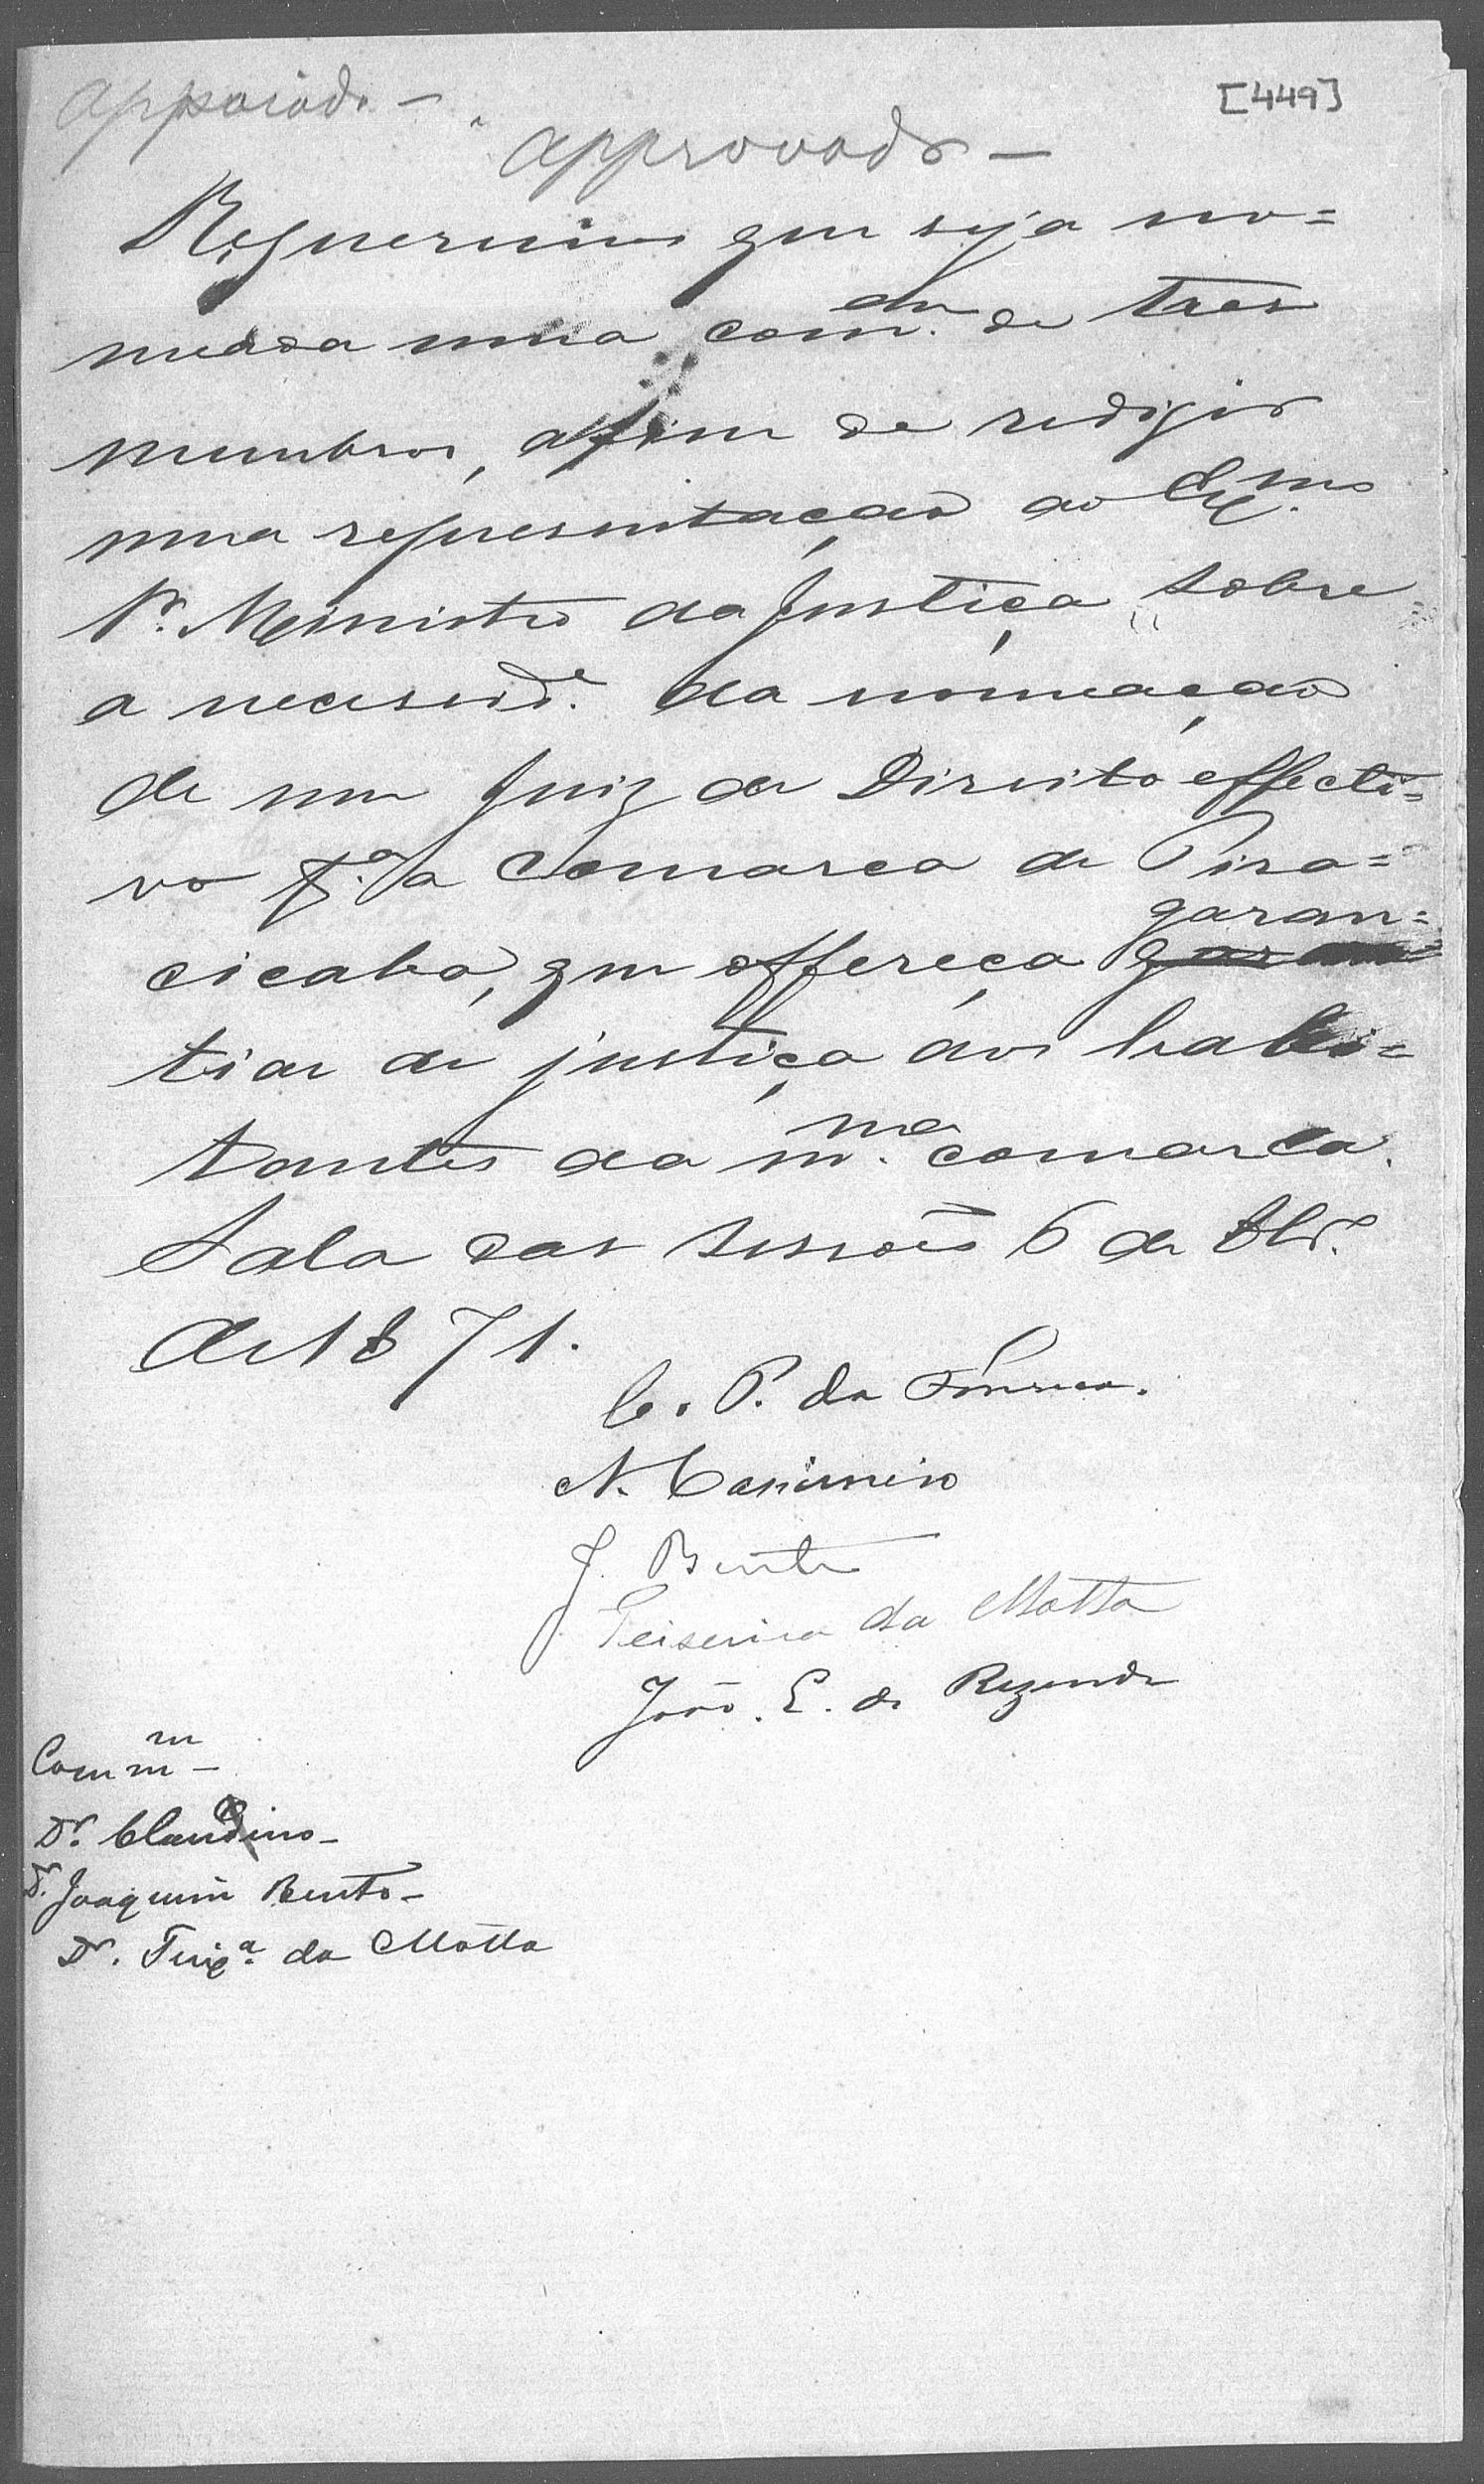 appoiado —
[449]
approvado —
Requeremos que seja no=
meada uma com.am de tres
membros, afim de redigir
uma representação ao Ex.mo
Sr. Ministro da Justiça sobre
a necessid.e da nomeação
de um Juiz de Direito effecti=
vo p.a a comarca de Pira=
garan=
cicaba, que offereça garan
tias de justiça aos habi=
tantes da m.ma comarca.
Sala das sessões 6 de
de 1871.
C. P. da Fonseca.
N. Casimiro
J. Bento
Teixeira da Motta
João. E. de Rezende
Comm.m —
Dr. Claudino —
Dr. Joaquim Bento —
Dr. Teix.a da Motta